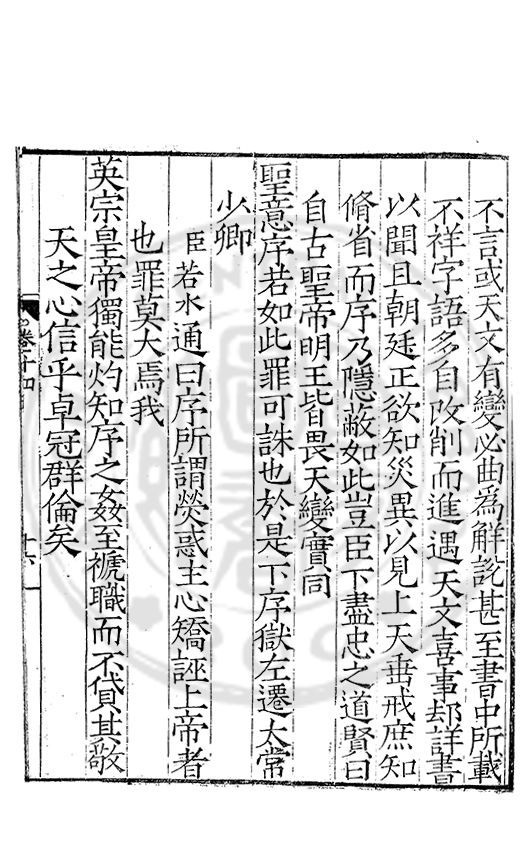 不言或天文有變必曲為解說甚至書中所載
不祥字語多自改削而進遇天文喜事却詳書
以聞且朝廷正欲知災異以見上天垂戒庶知
脩省而序乃隱蔽如此豈臣下盡忠之道賢曰
自古聖帝明王皆畏天變實同
聖意序若如此罪可誅也於是下序獄左遷太常
少卿
臣若水通曰序所謂熒惑主心矯誣上帝者
也罪莫大焉我
英宗皇帝獨能灼知序之姦至褫職而不貸其敬
天之心信乎卓冠群倫矣
卷之十四
十六